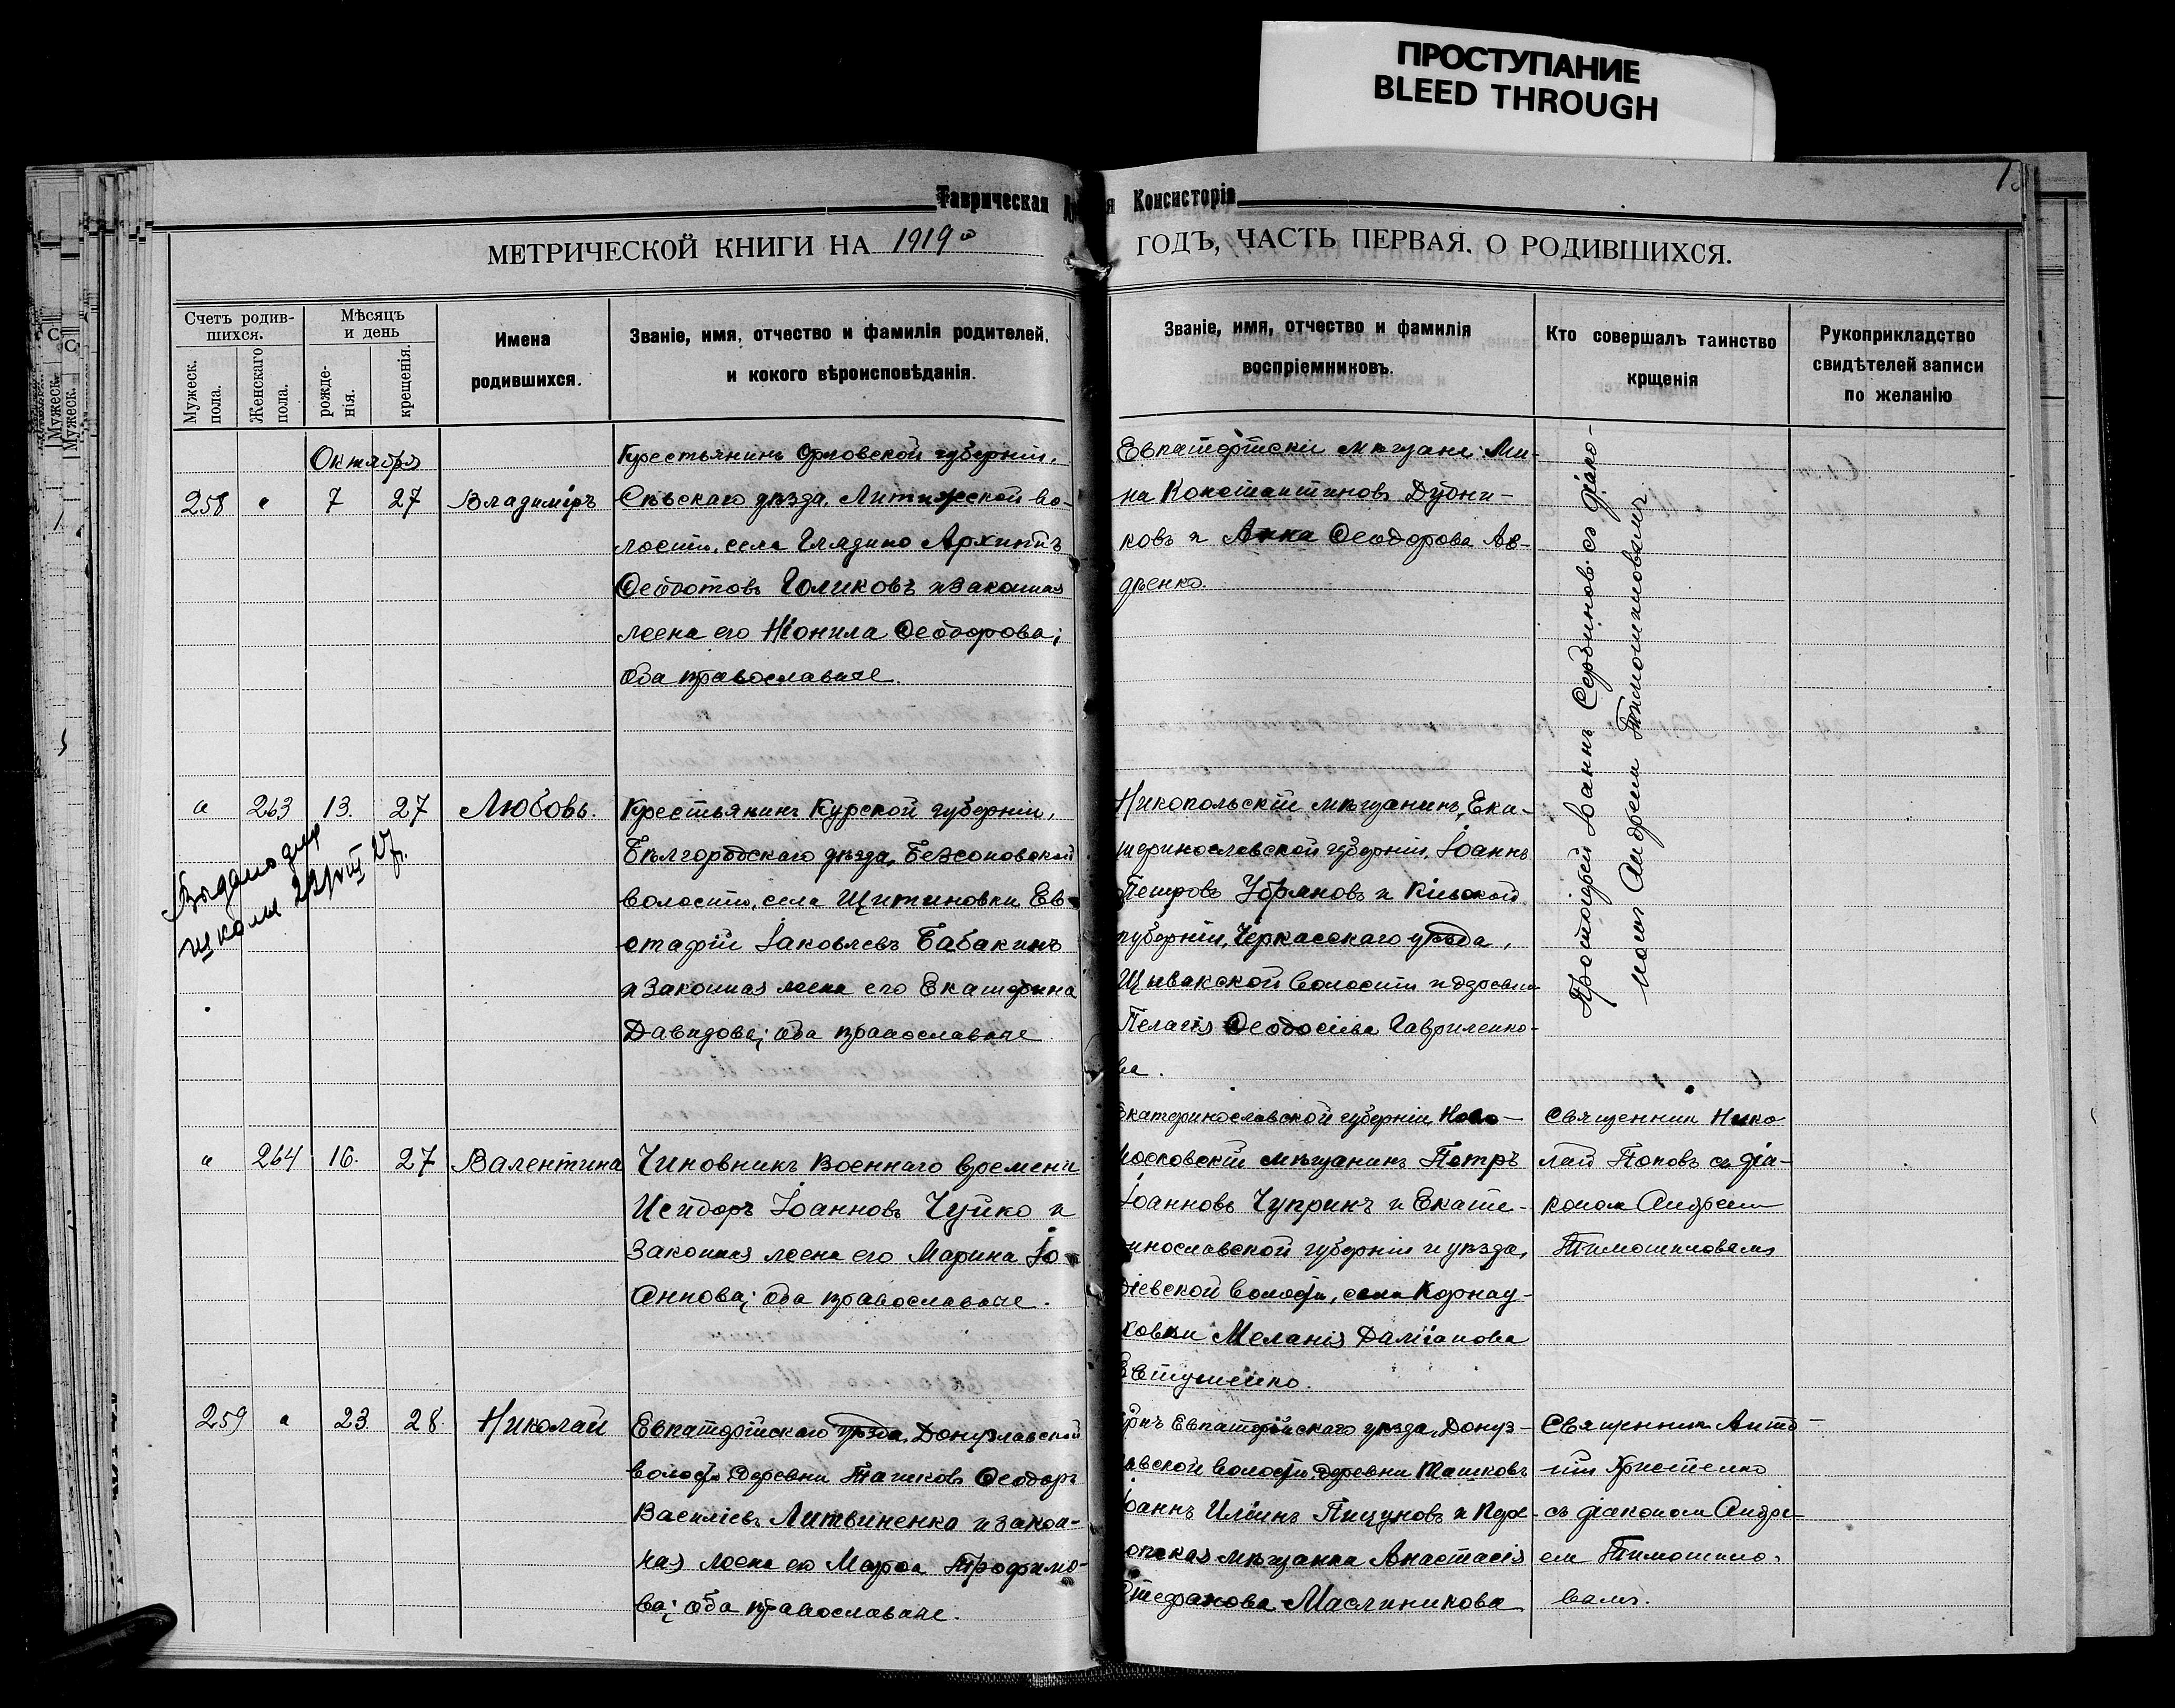 ПРОСТУПАНИЕ
BLEED THROUGH
Таврическая
Консисторія
МЕТРИЧЕСКОЙ КНИГИ НА 1919 ГОДЪ, ЧАСТЬ ПЕРВАЯ. О РОДИВШИХСЯ.
Счетъ родив-
шихся.
Мужеск.
пола.
Женскаго
пола.
Мѣсяцъ
и день
рожде-
нія.
крещенія.
Имена
родившихся.
Званіе, имя, отчество и фамилія родителей,
и кокого вѣроисповѣданія.
Званіе, имя, отчество и фамилія
воспріемниковъ.
Кто совершалъ таинство
крщенія
Рукоприкладство
свидѣтелей записи
по желанію
Октября
258 " 7 27 Владиміръ
Крестьянинъ Орловской губерніи,
Сѣвскаго уѣзда, Литижской во-
лости, села Глядино Архиппъ
Ѳедотовъ Голиковъ и законная
жена его Неонила Ѳеодорова;
оба православные.
Евпаторіскіи мѣщане: Ми-
на Константиновъ Дубни-
ковъ и Анна Ѳеодорова Ав-
дѣенко.
Протоіерей Іоаннъ Сербиновъ съ діако-
номъ Андреемъ Тимошиловымъ
" 263 13. 27 Любовь.
Крестьянинъ Курской губерніи,
Бѣлгородскаго уѣзда, Безсоновской
волости, села Щитиновки Ев-
стафій Іаковлевъ Бабакинъ
и законная жена его Екатерина
Давидова; оба православные
Никопольскій мѣщанинъ, Ека-
теринославской губерніи, Іоаннъ
Петровъ и Кіевской
губерніи, Черкасскаго уѣзда,
волости и деревни
Пелагія Ѳеодосіева Гавриленко-
ва.
Выдано для
школы 22/VIII 27 г.
" 264 16. 27 Валентина
Чиновникъ военнаго времени
Исидоръ Іоанновъ Чуйко и
законная жена его Марина Іо-
аннова; оба православные.
Екатеринославской губерніи, Ново-
московскій мѣщанинъ Петръ
Іоанновъ Чупринъ и Екате-
ринославской губерніи и уѣзда,
волости, села Корнау-
ховки Меланія Даміанова
Евтушенко.
Священник Нико
лай Поповъ съ діа-
кономъ Андреемъ
Тимошиловымъ
259 " 23. 28. Николай
Евпаторійскаго уѣзда, Донузлавской
волости, деревни Ташковъ Ѳеодоръ
Василіевъ Литвиненко и закон-
ная жена его Марѳа Трофимо-
ва; оба православные.
Евпаторійскаго уѣзда, Донуз-
лавской волости, деревни Ташковъ
Іоаннъ Иліинъ Пицуновъ и Пере-
копская мѣщанка Анастасія
Стефанова Маслиникова
Священник Анто-
ній Христенко
съ діакономъ Андре-
ем Тимошило-
вымъ.